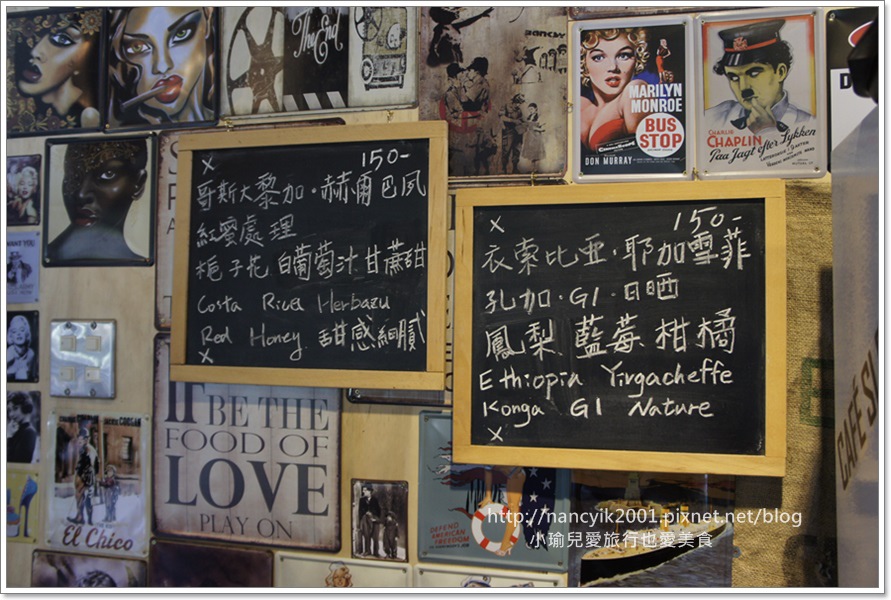 The End
BANKSY
MARILYN
MONROE
BUS
STOP
DON MURRAY
CHARLIE
CHAPLIN
Paa Jagt efter Lykken
× 150-
哥斯大黎加·赫爾巴夙
紅蜜處理
梔子花 白葡萄汁 甘蔗甜
Costa Rica Herbazu
Red Honey. 甜感細膩
×
× 150-
衣索比亞·耶加雪菲
孔加·G1·日晒
鳳梨 藍莓 柑橘
Ethiopia Yirgacheffe
Konga G1 Nature
×
WANT YOU
IF
BE THE
FOOD OF
LOVE
PLAY ON
El Chico
DEFEND
AMERICAN
FREEDOM
CAFÉ
http://nancyik2001.pixnet.net/blog
小瑜兒愛旅行也愛美食